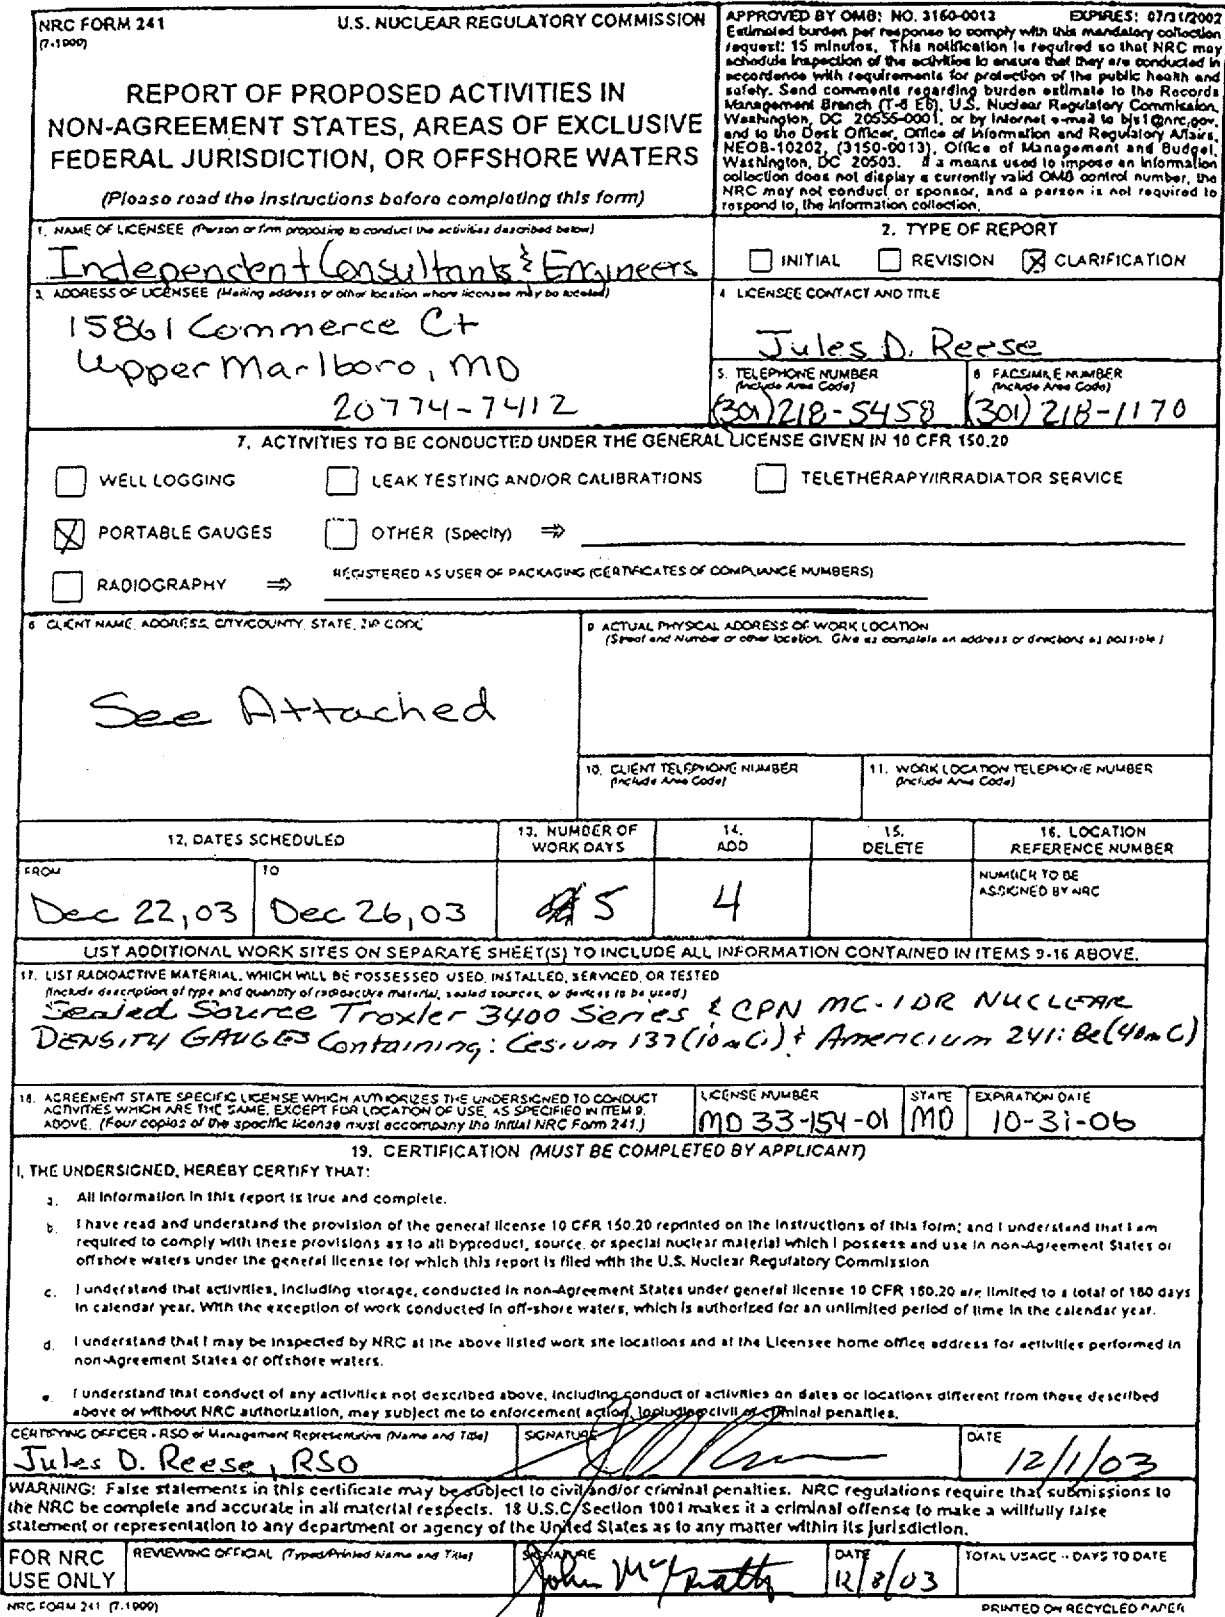 NRC FORM 241
(7-1999)
U.S. NUCLEAR REGULATORY COMMISSION
REPORT OF PROPOSED ACTIVITIES IN
NON-AGREEMENT STATES, AREAS OF EXCLUSIVE
FEDERAL JURISDICTION, OR OFFSHORE WATERS
(Please read the instructions before completing this form)
APPROVED BY OMB: NO. 3150-0013 EXPIRES: 07/31/2002
Estimated burden per response to comply with this mandatory collection
request: 15 minutes. This notification is required so that NRC may
schedule inspection of the activities to ensure that they are conducted in
accordance with requirements for protection of the public health and
safety. Send comments regarding burden estimate to the Records
Management Branch (T-6 E6), U.S. Nuclear Regulatory Commission,
Washington, DC 20555-0001, or by Internet e-mail to bjs1@nrc.gov,
and to the Desk Officer, Office of Information and Regulatory Affairs,
NEOB-10202, (3150-0013), Office of Management and Budget,
Washington, DC 20503. If a means used to impose an information
collection does not display a currently valid OMB control number, the
NRC may not conduct or sponsor, and a person is not required to
respond to, the information collection.
1. NAME OF LICENSEE (Person or firm proposing to conduct the activities described below)
Independent Consultants & Engineers
2. TYPE OF REPORT
INITIAL REVISION X CLARIFICATION
3. ADDRESS OF LICENSEE (Mailing address or other location where licensee may be located)
15861 Commerce Ct
Upper Marlboro, MD
20774-7412
4. LICENSEE CONTACT AND TITLE
Jules D. Reese
5. TELEPHONE NUMBER
(Include Area Code)
(301) 218-5458
6. FACSIMILE NUMBER
(Include Area Code)
(301) 218-1170
7. ACTIVITIES TO BE CONDUCTED UNDER THE GENERAL LICENSE GIVEN IN 10 CFR 150.20
WELL LOGGING LEAK TESTING AND/OR CALIBRATIONS TELETHERAPY/IRRADIATOR SERVICE
X PORTABLE GAUGES OTHER (Specify) ⇒
RADIOGRAPHY ⇒ REGISTERED AS USER OF PACKAGING (CERTIFICATES OF COMPLIANCE NUMBERS)
8. CLIENT NAME, ADDRESS, CITY/COUNTY, STATE, ZIP CODE
See Attached
9. ACTUAL PHYSICAL ADDRESS OF WORK LOCATION
(Street and Number or other location. Give as complete an address or directions as possible.)
10. CLIENT TELEPHONE NUMBER
(Include Area Code)
11. WORK LOCATION TELEPHONE NUMBER
(Include Area Code)
12. DATES SCHEDULED
13. NUMBER OF
WORK DAYS
14.
ADD
15.
DELETE
16. LOCATION
REFERENCE NUMBER
FROM
Dec 22, 03
TO
Dec 26, 03
5
4
NUMBER TO BE
ASSIGNED BY NRC
LIST ADDITIONAL WORK SITES ON SEPARATE SHEET(S) TO INCLUDE ALL INFORMATION CONTAINED IN ITEMS 9-16 ABOVE.
17. LIST RADIOACTIVE MATERIAL, WHICH WILL BE POSSESSED USED, INSTALLED, SERVICED, OR TESTED
(Include description of type and quantity of radioactive material, sealed sources, or devices to be used.)
Sealed Source Troxler 3400 Series & CPN MC-1DR NUCLEAR
DENSITY GAUGES Containing: Cesium 137 (10mCi) & Americium 241:Be (40mC)
18. AGREEMENT STATE SPECIFIC LICENSE WHICH AUTHORIZES THE UNDERSIGNED TO CONDUCT
ACTIVITIES WHICH ARE THE SAME, EXCEPT FOR LOCATION OF USE, AS SPECIFIED IN ITEM 9,
ABOVE. (Four copies of the specific license must accompany the initial NRC Form 241.)
LICENSE NUMBER
MD 33-154-01
STATE
MD
EXPIRATION DATE
10-31-06
19. CERTIFICATION (MUST BE COMPLETED BY APPLICANT)
I, THE UNDERSIGNED, HEREBY CERTIFY THAT:
a. All information in this report is true and complete.
b. I have read and understand the provision of the general license 10 CFR 150.20 reprinted on the instructions of this form; and I understand that I am
required to comply with these provisions as to all byproduct, source, or special nuclear material which I possess and use in non-Agreement States or
offshore waters under the general license for which this report is filed with the U.S. Nuclear Regulatory Commission
c. I understand that activities, including storage, conducted in non-Agreement States under general license 10 CFR 150.20 are limited to a total of 180 days
in calendar year. With the exception of work conducted in off-shore waters, which is authorized for an unlimited period of time in the calendar year.
d. I understand that I may be inspected by NRC at the above listed work site locations and at the Licensee home office address for activities performed in
non-Agreement States or offshore waters.
e. I understand that conduct of any activities not described above, including conduct of activities on dates or locations different from those described
above or without NRC authorization, may subject me to enforcement action, including civil or criminal penalties.
CERTIFYING OFFICER - RSO or Management Representative (Name and Title)
Jules D. Reese, RSO
SIGNATURE
DATE
12/1/03
WARNING: False statements in this certificate may be subject to civil and/or criminal penalties. NRC regulations require that submissions to
the NRC be complete and accurate in all material respects. 18 U.S.C. Section 1001 makes it a criminal offense to make a willfully false
statement or representation to any department or agency of the United States as to any matter within its jurisdiction.
FOR NRC
USE ONLY
REVIEWING OFFICIAL (Typed/Printed Name and Title)
SIGNATURE
John McGrath
DATE
12/8/03
TOTAL USAGE - DAYS TO DATE
NRC FORM 241 (7-1999)
PRINTED ON RECYCLED PAPER